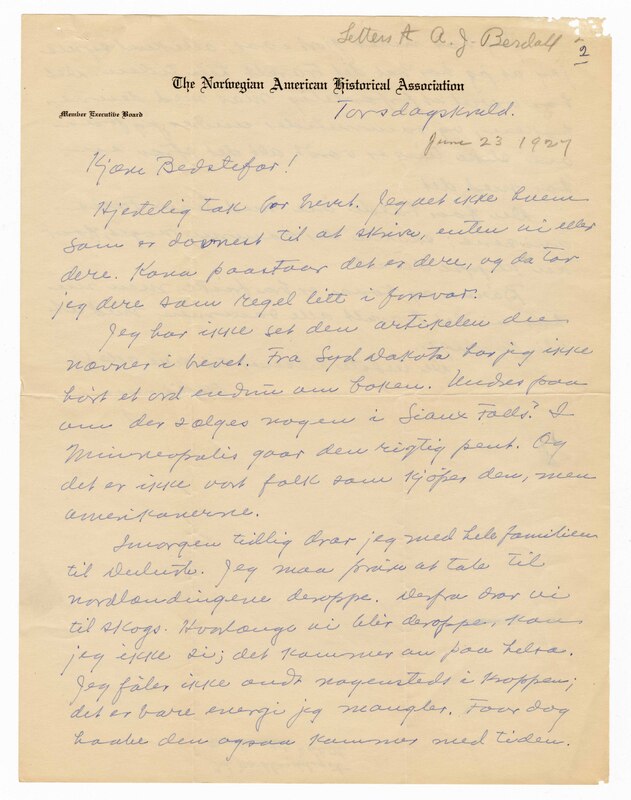 Letters to A. J. Berdahl
2
The Norwegian American Historical Association
Member Executive Board
Torsdagskveld.
June 23 1927
Kjære Bedstefar!
Hjertelig tak for brevet. Jeg vet ikke hvem
som er dovnest til at skrive, enten vi eller
dere. Kona paastaar det er dere, og da tar
jeg dere som regel litt i forsvar.
Jeg har ikke set den artikelen du
nævner i brevet. Fra Syd Dakota har jeg ikke
hørt et ord endnu om boken. Undres paa
om der sælges nogen i Sioux Falls? I
Minneapolis gaar den rigtig pent. Og
det er ikke vort folk som kjøper den, men
amerikanerne.
Imorgen tidlig drar jeg med hele familien
til Duluth. Jeg maa prøve at tale til
nordlændingene deroppe. Derfra drar vi
til skogs. Hvorlænge vi blir deroppe, kan
jeg ikke si; det kommer an paa helsa.
Jeg føler ikke ondt nogensteds i kroppen;
det er bare energi jeg mangler. Faar dog
haabe den ogsaa kommer med tiden.